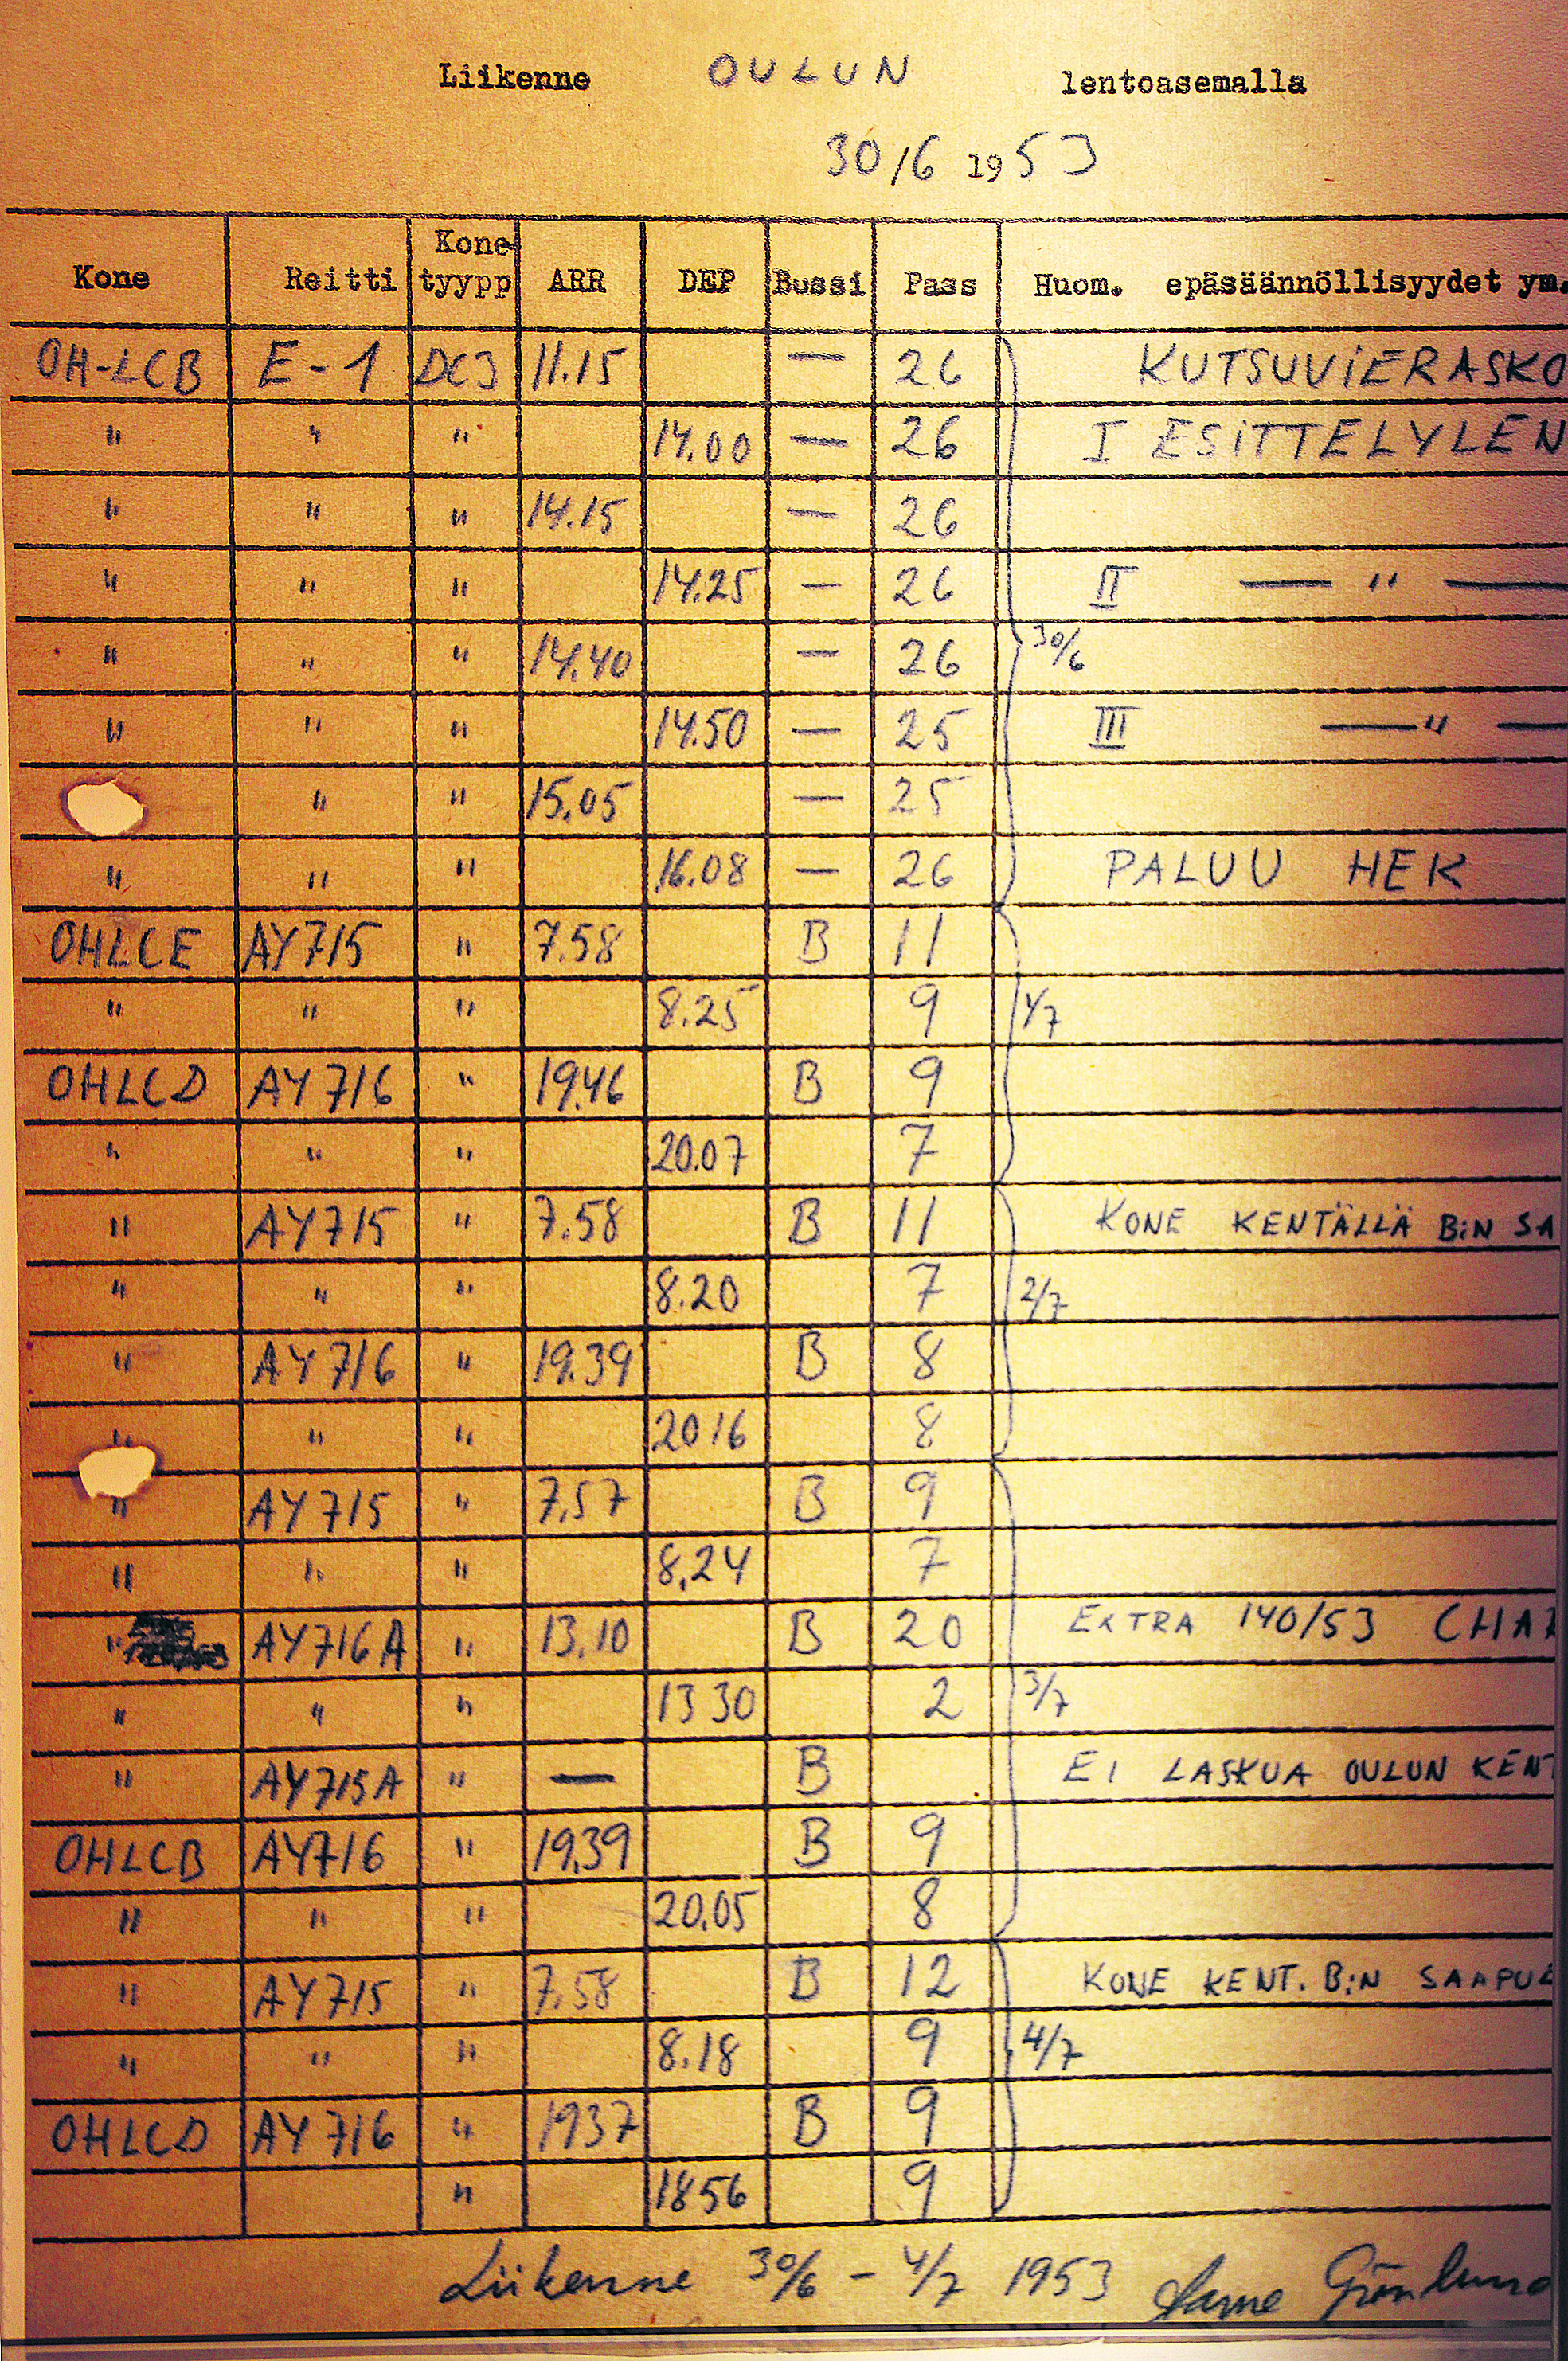 Liikenne OULUN lentoasemalla
30/6 1953
Kone Reitti Kone-tyypp ARR DEP Bussi Pass Huom. epäsäännöllisyydet ym.
OH-LCB E-1 DC3 11.15 — 26 KUTSUVIERASKO
" " " 14.00 — 26 I ESITTELYLEN
" " " 14.15 — 26
" " " 14.25 — 26 II — " —
" " " 14.40 — 26 30/6
" " " 14.50 — 25 III — " —
" " 15.05 — 25
" " " 16.08 — 26 PALUU HEK
OHLCE AY715 " 7.58 B 11
" " " 8.25 9 1/7
OHLCD AY716 " 19.46 B 9
" " " 20.07 7
" AY715 " 7.58 B 11 KONE KENTÄLLÄ B:N SA
" " " 8.20 7 2/7
" AY716 " 19.39 B 8
" " " 2016 8
" AY715 " 7.57 B 9
" " " 8.24 7
" AY716A " 13.10 B 20 EXTRA 140/53 CHAR
" " " 13 30 2 3/7
" AY715A " — B EI LASKUA OULUN KENT
OHLCB AY716 " 19.39 B 9
" " " 20.05 8
" AY715 " 7.58 B 12 KONE KENT. B:N SAAPUE
" " " 8.18 9 4/7
OHLCD AY716 " 1937 B 9
" 1856 9
Liikenne 30/6 – 4/7 1953 Grönlund